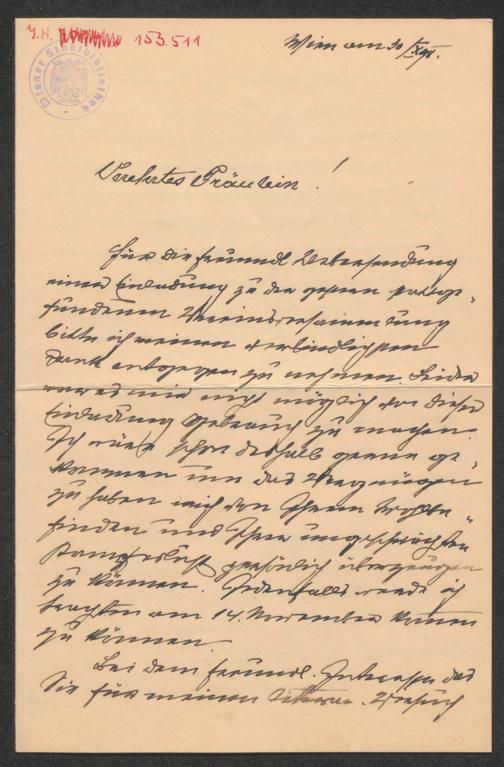 J.N. 153.511
Wiener Stadtbibliothek
Wien am 30/X 98.
Verehrtes Fräulein!
Für die freundl Uebersendung
einer Einladung zu der gestern stattge-
fundenen Vereinsversammlung
bitte ich meinen verbindlichsten
Dank entgegen zu nehmen. Leider
war es mir nicht möglich von dieser
Einladung Gebrauch zu machen.
Ich wäre schon deshalb gerne ge-
kommen um das Vergnügen
zu haben mich von Ihrem Wohlbe-
finden und Ihrer ungeschwächten
Kampfeslust persönlich überzeugen
zu können. Jedenfalls werde ich
trachten am 14. November kommen
zu können.
Bei dem freundl. Interesse das
Sie für meinen Versuch